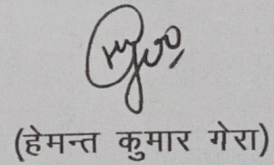 (हेमन्त कुमार गेरा)